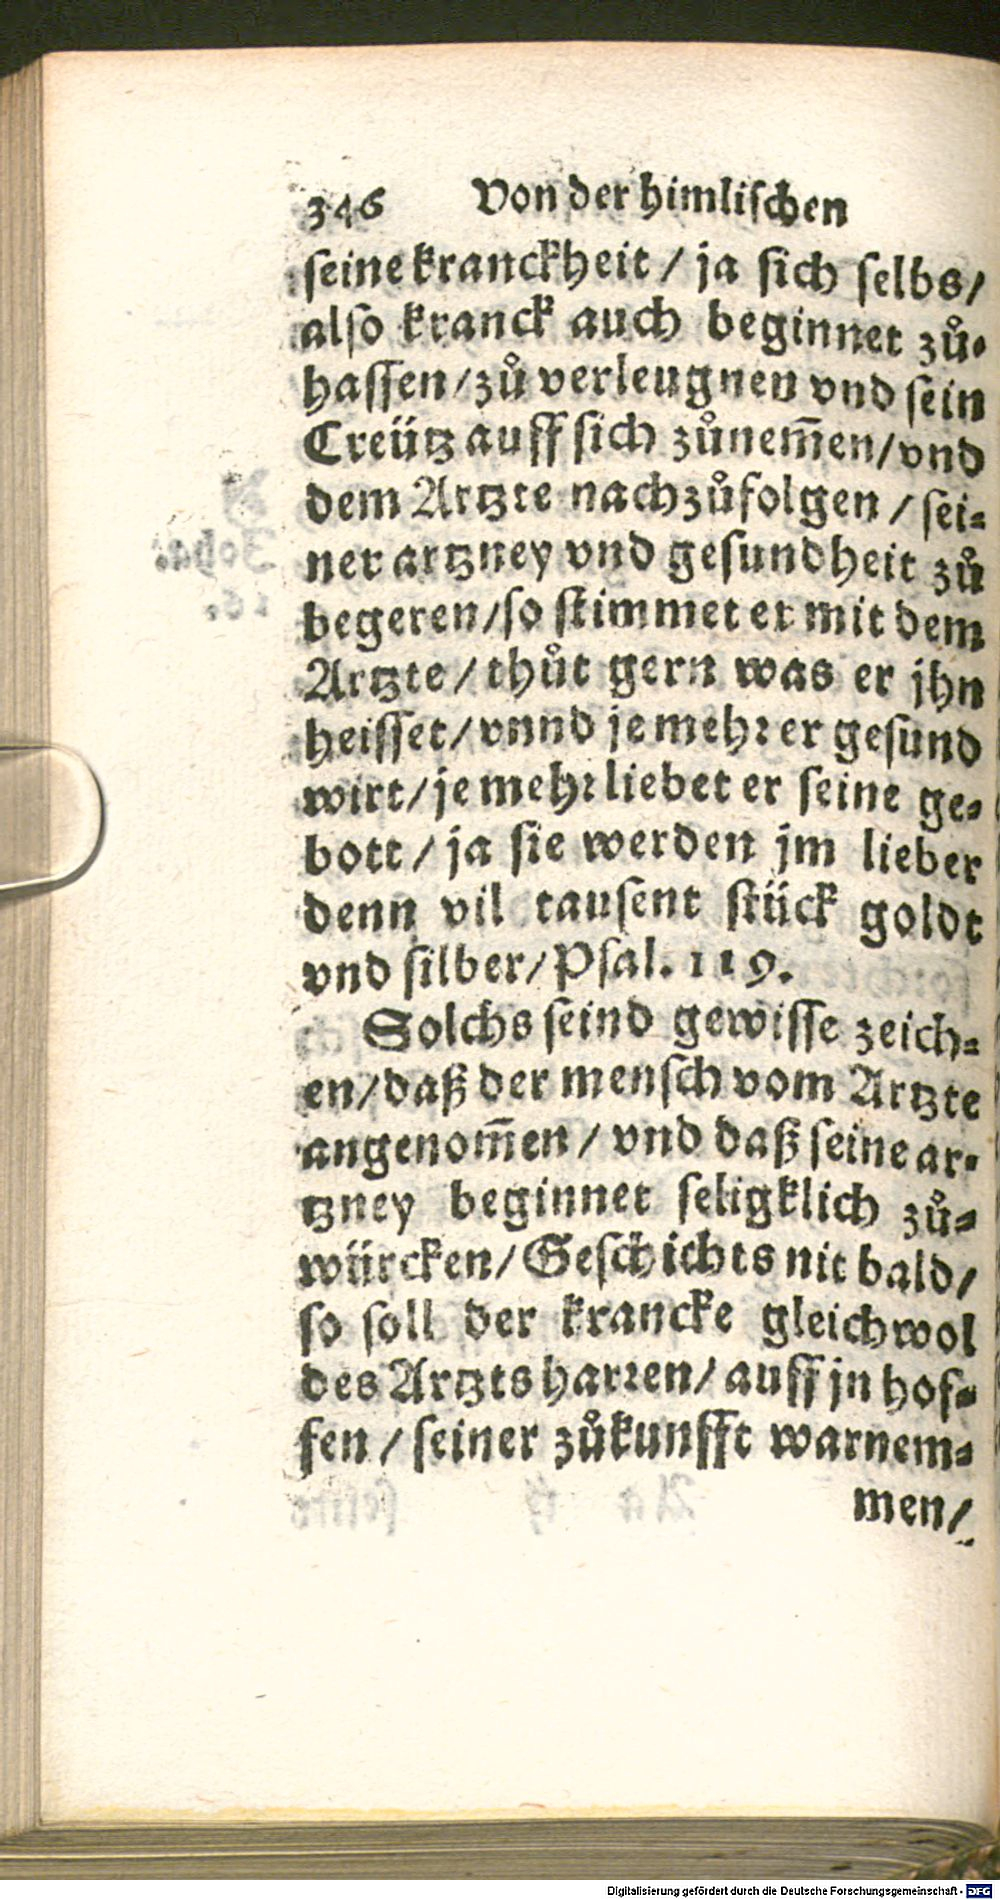 346 Von der himliſchen
ſeine kranckheit / ja ſich ſelbs /
alſo kranck auch beginnet zů-
haſſen / zů verleugnen vnd ſein
Creütz auff ſich zůnem̄en / vnd
dem Artzte nachzůfolgen / ſei-
ner artzney vnd geſundheit zů
begeren / ſo ſtimmet er mit dem
Artzte / thůt gern was er jhn
heiſſet / vnnd je mehꝛ er geſund
wirt / je mehꝛ liebet er ſeine ge-
bott / ja ſie werden jm lieber
denn vil tauſent ſtück goldt
vnd ſilber / Pſal. 119.
Solchs ſeind gewiſſe zeich-
en / daß der menſch vom Artzte
angenom̄en / vnd daß ſeine ar-
tzney beginnet ſeligklich zů-
würcken / Geſchichts nit bald /
ſo ſoll der krancke gleichwol
des Artzts harꝛen / auff jn hof-
fen / ſeiner zůkunfft warnem-
men /
Digitalisierung gefördert durch die Deutsche Forschungsgemeinschaft - DFG